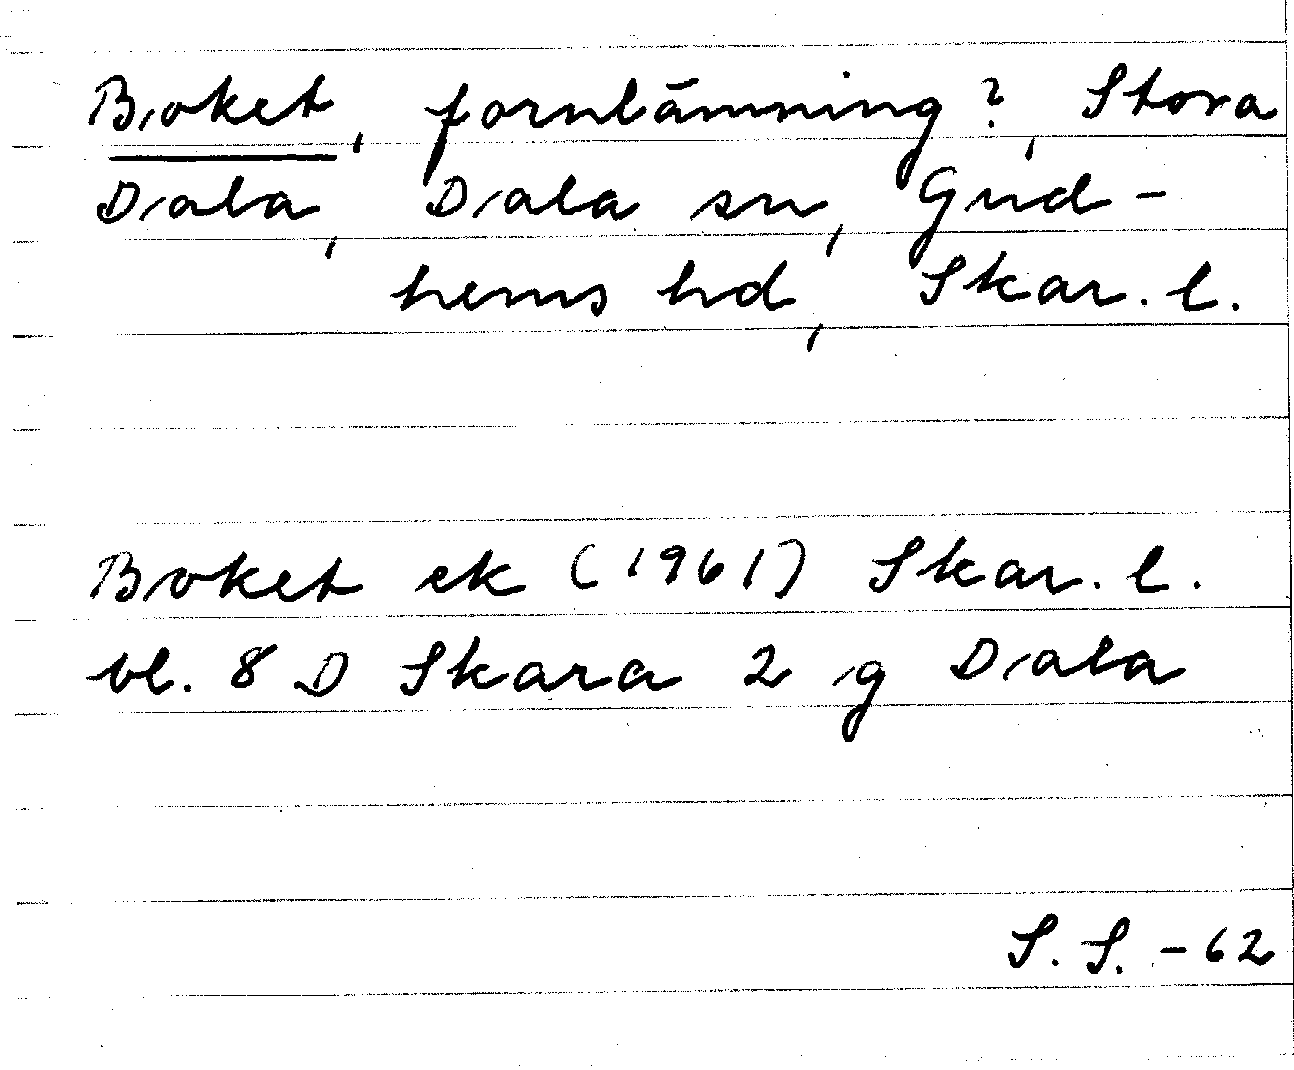 Boket, fornlämning?, Stora
Dala, Dala sn, Gud-
hems hd, Skar. l.
Boket ek (1961) Skar. l.
bl. 8 D Skara 2 g Dala
S. S. -62